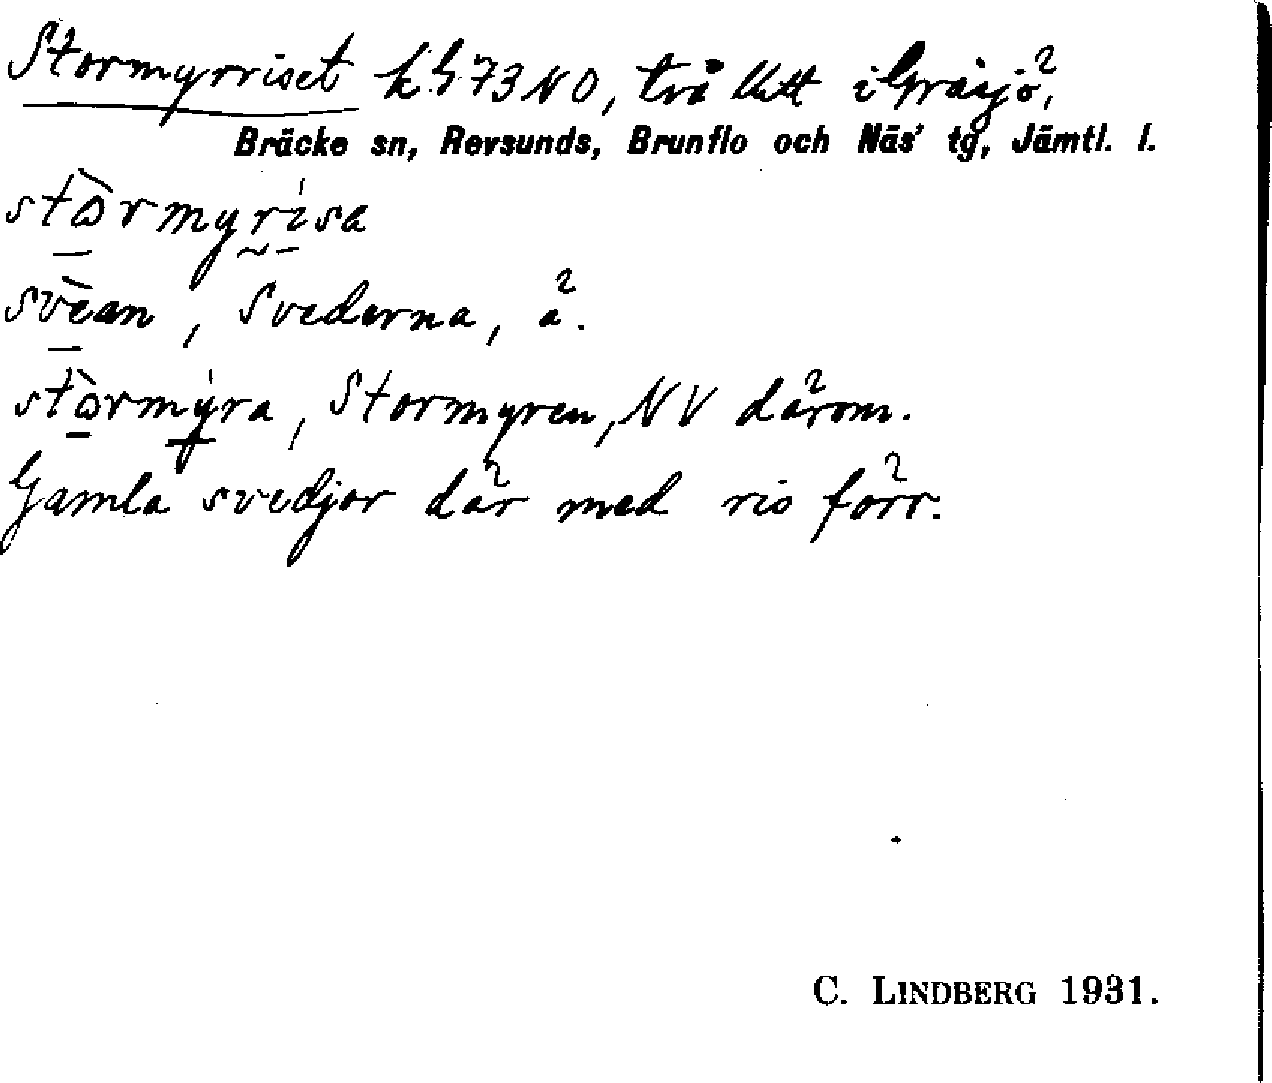 Stormyrriset kh 73 NO, två litt i Gräsjö,
Bräcke sn, Revsunds, Brunflo och Näs' tg, Jämtl. l.
stòrmyrísa
svèan, Svederna, ä.
stòrmýra, Stormyren, NV därom.
Gamla svedjor där med ris förr.
C. LINDBERG 1931.